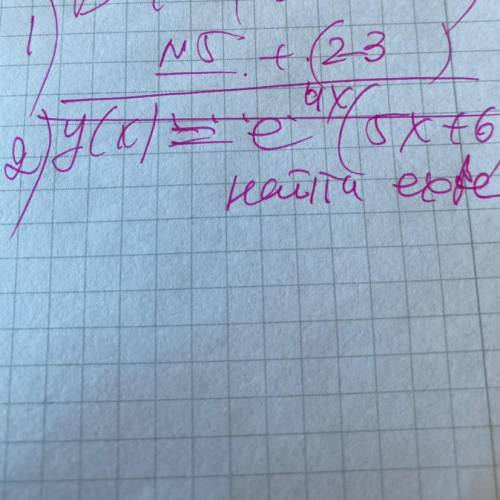 1)
№5 + (23)
2) y(x) = e^9x (5x+6
найти